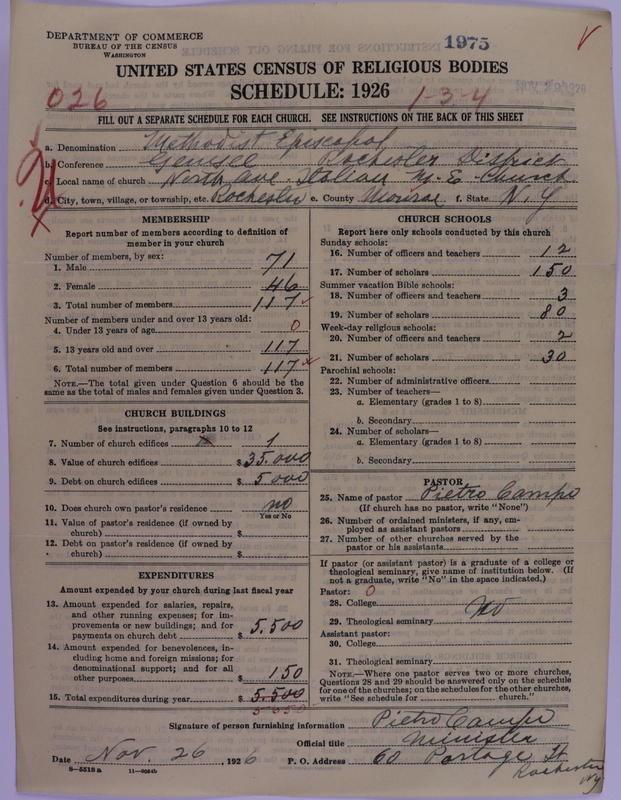 DEPARTMENT OF COMMERCE
BUREAU OF THE CENSUS
WASHINGTON
1975
UNITED STATES CENSUS OF RELIGIOUS BODIES
SCHEDULE: 1926
026
1-3-4
FILL OUT A SEPARATE SCHEDULE FOR EACH CHURCH. SEE INSTRUCTIONS ON THE BACK OF THIS SHEET
a. Denomination Methodist Episcopal
b. Conference Genesee Rochester District
c. Local name of church North Ave Italian M. E. Church
d. City, town, village, or township, etc. Rochester e. County Monroe f. State N. Y
MEMBERSHIP
Report number of members according to definition of
member in your church
Number of members, by sex:
1. Male 71
2. Female 46
3. Total number of members 117
Number of members under and over 13 years old:
4. Under 13 years of age 0
5. 13 years old and over 117
6. Total number of members 117
NOTE.—The total given under Question 6 should be the
same as the total of males and females given under Question 3.
CHURCH BUILDINGS
See instructions, paragraphs 10 to 12
7. Number of church edifices 1
8. Value of church edifices $ 35.000
9. Debt on church edifices $ 5000
10. Does church own pastor's residence no
Yes or No
11. Value of pastor's residence (if owned by
church) $
12. Debt on pastor's residence (if owned by
church) $
EXPENDITURES
Amount expended by your church during last fiscal year
13. Amount expended for salaries, repairs,
and other running expenses; for im-
provements or new buildings; and for
payments on church debt $ 5.500
14. Amount expended for benevolences, in-
cluding home and foreign missions; for
denominational support; and for all
other purposes $ 150
15. Total expenditures during year $ 5.500
5650
CHURCH SCHOOLS
Report here only schools conducted by this church
Sunday schools:
16. Number of officers and teachers 12
17. Number of scholars 150
Summer vacation Bible schools:
18. Number of officers and teachers 3
19. Number of scholars 80
Week-day religious schools:
20. Number of officers and teachers 2
21. Number of scholars 30
Parochial schools:
22. Number of administrative officers
23. Number of teachers—
a. Elementary (grades 1 to 8)
b. Secondary
24. Number of scholars—
a. Elementary (grades 1 to 8)
b. Secondary
PASTOR
25. Name of pastor Pietro Campo
(If church has no pastor, write "None")
26. Number of ordained ministers, if any, em-
ployed as assistant pastors
27. Number of other churches served by the
pastor or his assistants
If pastor (or assistant pastor) is a graduate of a college or
theological seminary, give name of institution below. (If
not a graduate, write "No" in the space indicated.)
Pastor: 0
28. College
29. Theological seminary no
Assistant pastor:
30. College
31. Theological seminary
NOTE.—Where one pastor serves two or more churches,
Questions 28 and 29 should be answered only on the schedule
for one of the churches; on the schedules for the other churches,
write "See schedule for church."
Signature of person furnishing information Pietro Campo
Official title Minister
Date Nov. 26, 1926 P. O. Address 60 Portage St
Rochester
NY
8—5518a 11—9064b